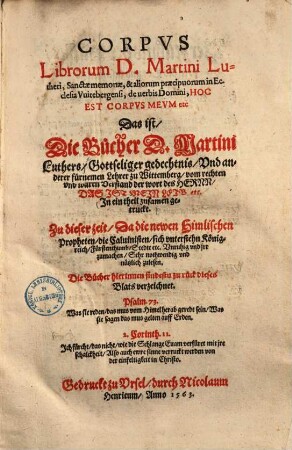 CORPVS
Librorum D. Martini Lu-
theri, Sanctæ memoriæ, & aliorum præcipuorum in Ec-
clesia Vuitebergensi, de uerbis Domini, HOC
EST CORPVS MEVM etc
Das ist/
Die Bücher D. Martini
Luthers/ Gottseliger gedechtnis/ Vnd an-
derer fürnemen Lehrer zu Wittemberg/ vom rechten
vnd waren Verstand der wort des HERRN/
DAS IST MEIN LEIB etc.
In ein theil zusamen ge-
truckt.
Zu dieser zeit/ Da die newen Himlischen
Propheten/ die Caluinisten/ sich vnterstehn König-
reich/ Fürstenthumb/ Stedte etc. Vnruhig vnd jre
zumachen/ Sehr notwendig vnd
nützlich zulesen.
Die Bücher hierinnen findestu zu rück dieses
Blats verzeichnet.
Psalm. 73.
Was sie reden/ das mus vom Himel herab geredt sein/ Was
sie sagen das mus gelten auff Erden.
2. Corinth. 11.
Ich fürcht/ das nicht/ wie die Schlange Euam verfüret mit jrer
schalckheit/ Also auch ewre sinne verruckt werden von
der einfeltigkeit in Christo.
Gedruckt zu Vrsel/ durch Nicolaum
Henricum/ Anno 1563.